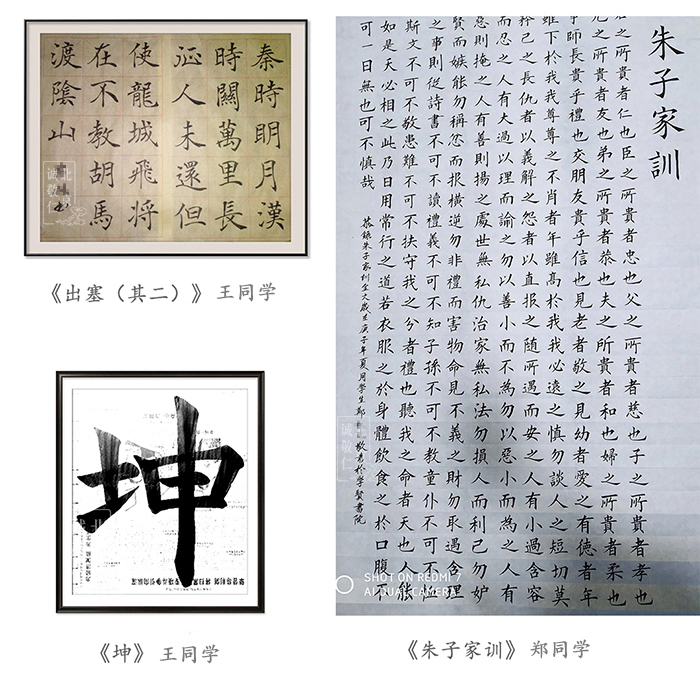 秦時明月漢
時關萬里長
征人未還但
使龍城飛将
在不教胡馬
渡陰山
《出塞（其二）》 王同学
坤
《坤》 王同学
朱子家訓
君之所貴者仁也臣之所貴者忠也父之所貴者慈也子之所貴者孝也
兄之所貴者友也弟之所貴者恭也夫之所貴者和也婦之所貴者柔也
事師長貴乎禮也交朋友貴乎信也見老者敬之見幼者愛之有德者年
雖下於我我尊尊之不肖者年雖高於我我必遠之慎勿談人之短切莫
矜己之長仇者以義解之怨者以直报之随所遇而安之人有小過含容
而忍之人有大過以理而論之勿以善小而不為勿以惡小而為之人有
惡則掩之人有善則揚之處世無私仇治家無私法勿損人而利己勿妒
賢而嫉能勿稱忿而报横逆勿非禮而害物命見不義之財勿取遇含理
之事則從詩書不可不讀禮義不可不知子孫不可不教童仆不可不恤
斯文不可不敬患難不可不扶守我之分者禮也聽我之命者天也人能
如是天必相之此乃日用常行之道若衣服之於身體飲食之於口腹不
可一日無也可不慎哉
恭錄朱子家訓全文歲在庚子年夏月學生郑敬書於學賢書院
SHOT ON REDMI 7
AI DUAL CAMERA
《朱子家训》 郑同学